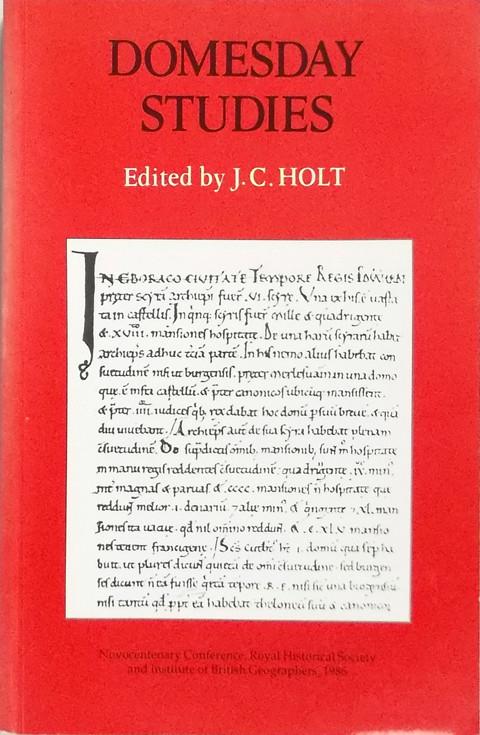 DOMESDAY
STUDIES
Edited by J.C. HOLT
IN EBORACO CIVITATE TEMPORE REGIS
scyrā archiepi fuer .VI. scyre. Una ex his ē uasta
ta in castellis. In qnq; scyris fuer mille & quadringente
& .XVIII. mansiones hospitate. De una harū scyrarū habet
archieps adhuc tciā partē. In his nemo alius habebat con
suetudinē ut burgensis. preter in una domo
que. ē infra castellū. & pter canonicos ubicuq; mansissent.
& pter .IIII. iudices qb; rex dabat hoc donū p suū breue. & qdiu
uiuebant. Archieps aut de sua scyra habebat plenam
csuetudinē. De supdictis omib; mansionib; st in hospitate
in manu regis reddentes csuetudinē. quadringente .IX. min
int magnas & paruas. & .CCCC. mansiones n hospitate que
reddunt melior .I. denariū & .XL. man
siones ita uacue. qd nil omino reddunt. & .C.XLV. mansio
nes tenent francigene. Scs cutbt ht .I. domū quā sep ha
buit. ut plures dicunt quietā de omi csuetudine. sed burgen
ses dicunt tepore .R.E. nisi sic una
nisi tantū qd ppt eā habebat theloneū suū & canonicor
Novocentenary Conference, Royal Historical Society
and Institute of British Geographers, 1986